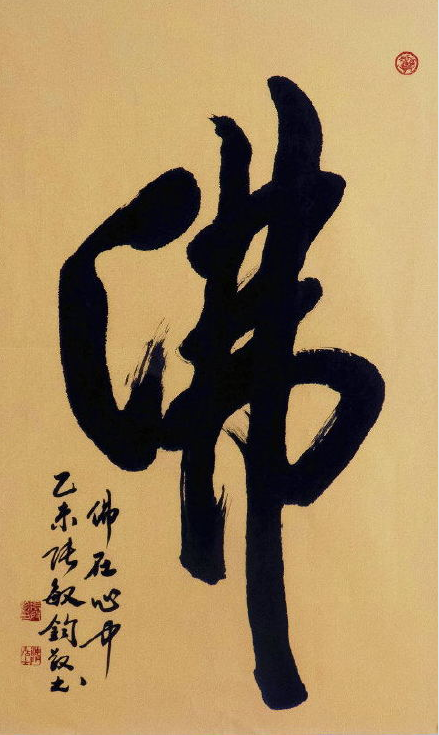 佛
佛在心中
乙未张敏钧敬书